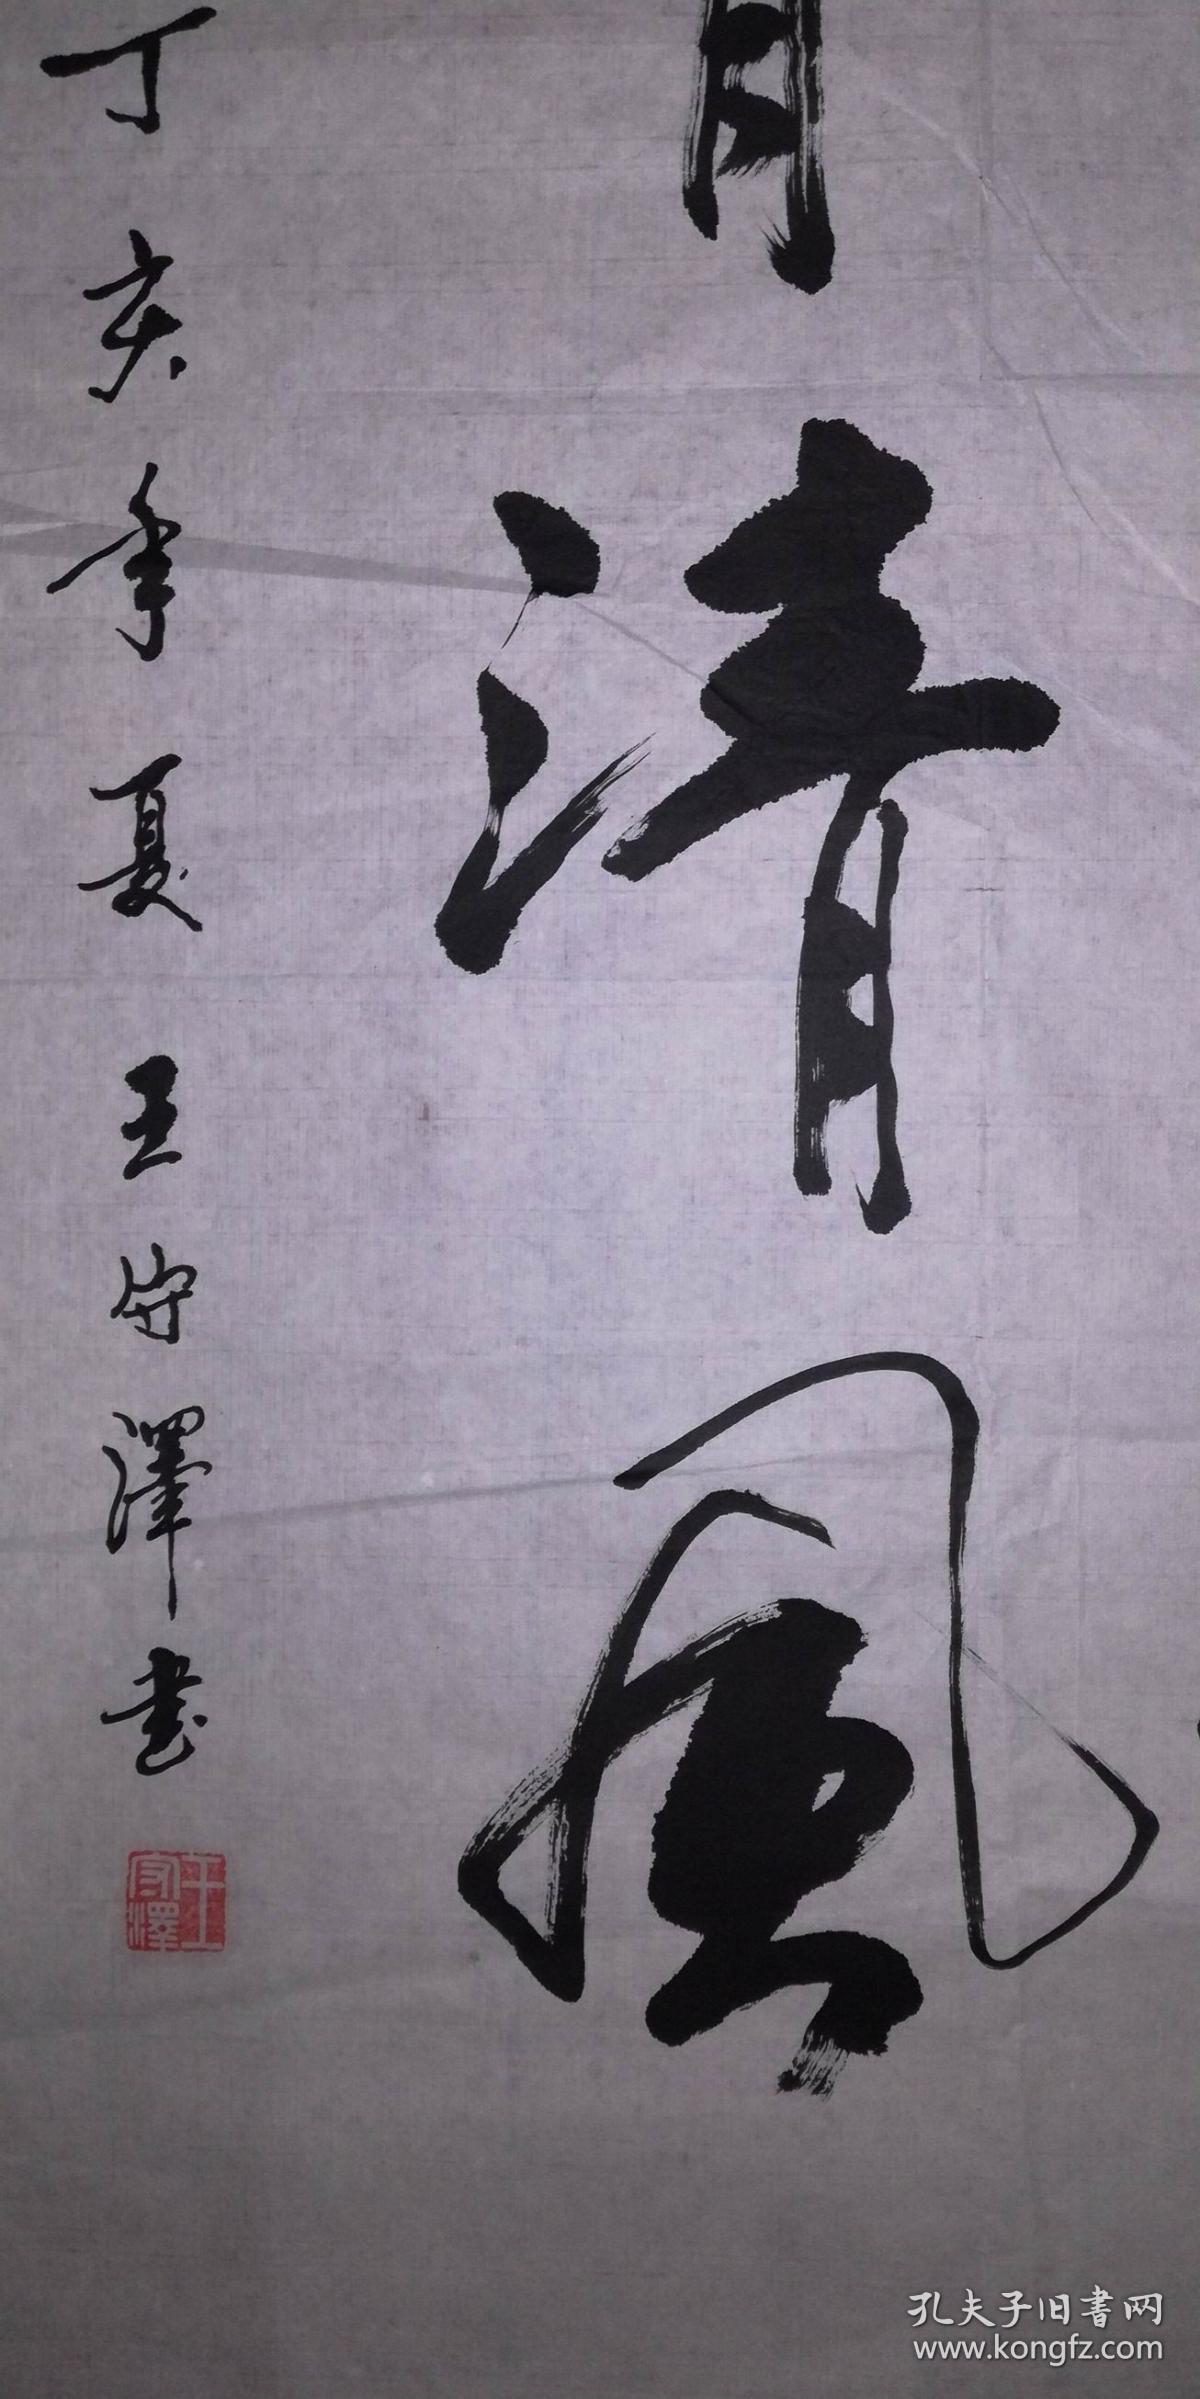 月清风
丁亥年夏王守泽书
王守澤
孔夫子旧书网
www.kongfz.com